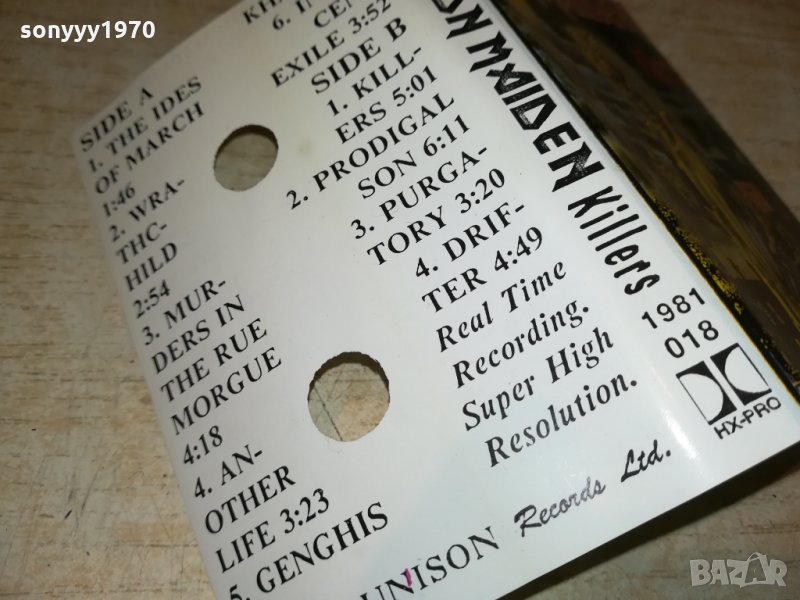 sonyyy1970
SIDE A
1. THE IDES
OF MARCH
1:46
2. WRA-
THC-
HILD
2:54
3. MUR-
DERS IN
THE RUE
MORGUE
4:18
4. AN-
OTHER
LIFE 3:23
5. GENGHIS
6. I
CEN
EXILE 3:52
SIDE B
1. KILL-
ERS 5:01
2. PRODIGAL
SON 6:11
3. PURGA-
TORY 3:20
4. DRIF-
TER 4:49
Real Time
Recording.
Super High
Resolution.
UNISON Records Ltd.
ON MAIDEN Killers
1981
018
HX-PRO
BAZAR